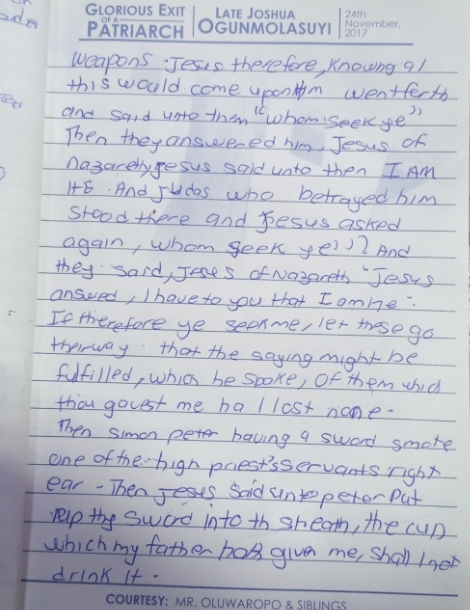 GLORIOUS EXIT
OF A
PATRIARCH
LATE JOSHUA
OGUNMOLASUYI
24th
November,
2017
weapons. Jesus therefore, knowing al
this would come upon him went forth
and said unto them "whom seek ye"
Then they answered him, Jesus of
Nazareth, Jesus said unto then I AM
HE. And Judas who betrayed him
stood there and Jesus asked
again, whom seek ye"? And
they said, Jeses of Nazareth "Jesus
answed, I have to you that I am he".
If therefore ye seek me, let these go
their way. that the saying might be
fulfilled, which he spoke, Of them which
thou gavest me ha I lost none -
Then Simon peter having a sword smote
one of the high priest's servants right
ear - Then Jeses said unto peter Put
up thy sword into th sheath, the cup
which my father hath given me, shall I not
drink it -
COURTESY: MR. OLUWAROPO & SIBLINGS